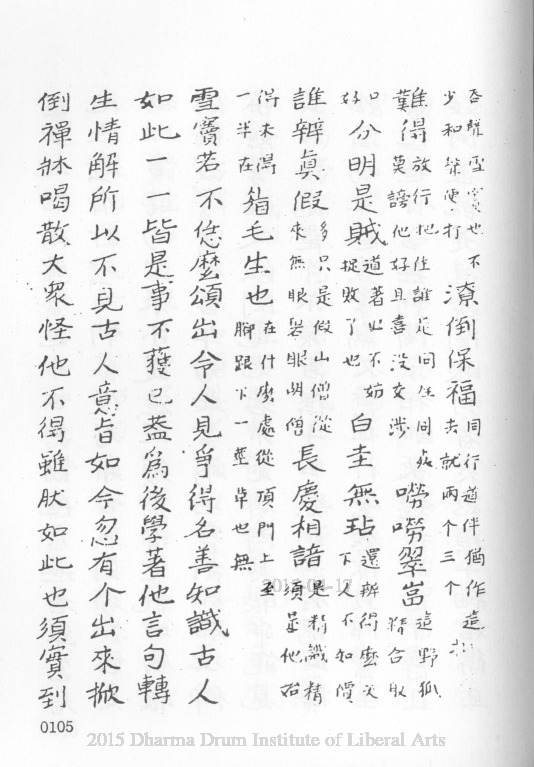 否聲雪竇也不少和聲便打潦倒保福同行道伴猶作這去就兩个三个
難得放行把住誰是同生同死莫謗他好且喜沒交涉嘮嘮翠嵓這野狐精合取
口好分明是賊道著也不妨捉敗了也白圭無玷還辨得麼天下人不知價
誰辨真假多只是假山僧從來無眼碧眼胡僧長慶相諳是精識精須是他始
得未得一半在眉毛生也在什麼處從頂門上至腳跟下一莖草也無
雪竇若不恁麼頌出令人見爭得名善知識古人
如此一一皆是事不獲已蓋為後學著他言句轉
生情解所以不見古人意旨如今忽有个出來掀
倒禪牀喝散大眾怪他不得雖肰如此也須實到
0105
2015 Dharma Drum Institute of Liberal Arts